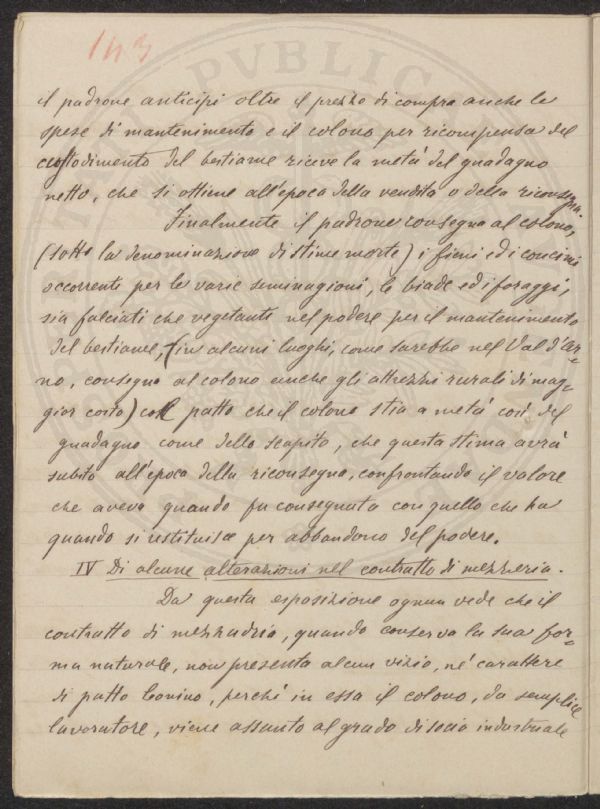 143
il padrone anticipi oltre il prezzo di compra anche le
spese di mantenimento e il colono per ricompensa del
custodimento del bestiame riceve la metà del guadagno
netto, che si ottiene all'epoca della vendita o della riconsegna.
Finalmente il padrone consegna al colono,
(sotto la denominazione di stime morte) i fieni ed i concimi
occorrenti per le varie seminagioni, le biade ed i foraggi,
sia falciati che vegetanti nel podere per il mantenimento
del bestiame, (in alcuni luoghi, come sarebbe nel Val d'Ar-
no, consegna al colono anche gli attrezzi rurali di mag-
gior costo) col patto che il colono stia a metà così del
guadagno come dello scapito, che questa stima avrà
subito all'epoca della riconsegna, confrontando il valore
che aveva quando fu consegnata con quello che ha
quando si restituisce per abbandono del podere.
IV Di alcune alterazioni nel contratto di mezzeria.
Da questa esposizione ognun vede che il
contratto di mezzadria, quando conserva la sua for-
ma naturale, non presenta alcun vizio, né carattere
di patto leonino, perché in essa il colono, da semplice
lavoratore, viene assunto al grado di socio industriale